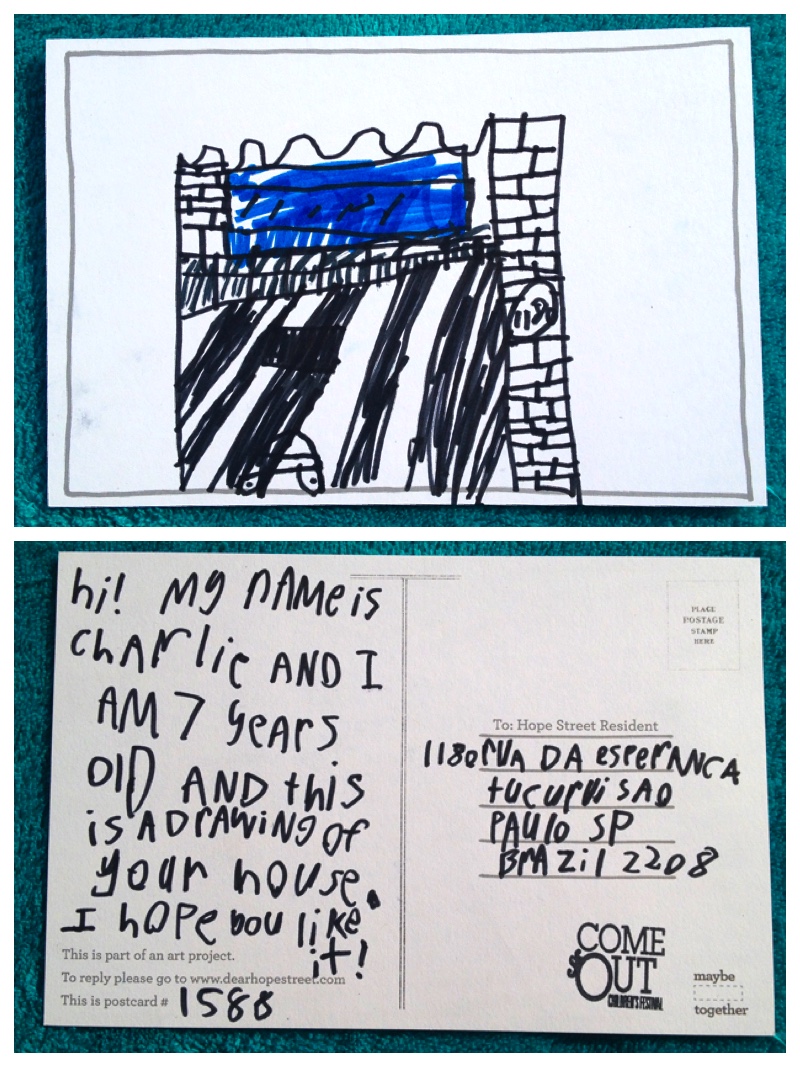 1180
hi! My NAMe is
chArlie AND I
AM 7 yeArs
OlD AND this
is A DrAwiNg of
your house.
I hope you like
it!
This is part of an art project.
To reply please go to www.dearhopestreet.com
This is postcard # 1588
PLACE
POSTAGE
STAMP
HERE
To: Hope Street Resident
1180 rUA DA esperANCA
tucuruvi SAO
PAUlo SP
BrAzil 2208
COME
OUT
CHILDREN'S FESTIVAL
maybe
together